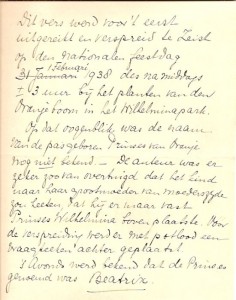 Dit vers werd voor 't eerst
uitgereikt en verspreid te Zeist
op den nationalen feestdag
1 Februari
31 Januari 1938 des na middags
± 3 uur bij het planten van den
Oranjeboom in het Wilhelminapark.
Op dat oogenblik was de naam
van de pasgeboren Prinses van Oranje
nog niet bekend. — De auteur was er
zeker zoo van overtuigd dat het kind
naar haar grootmoeder van moederszijde
zou heeten, dat hij er maar vast
Prinses Wilhelmina boven plaatste. Voor
de verspreiding werd er met potlood een
vraagteeken achter geplaatst.
's Avonds werd bekend dat de Prinses
genoemd was Beatrix.